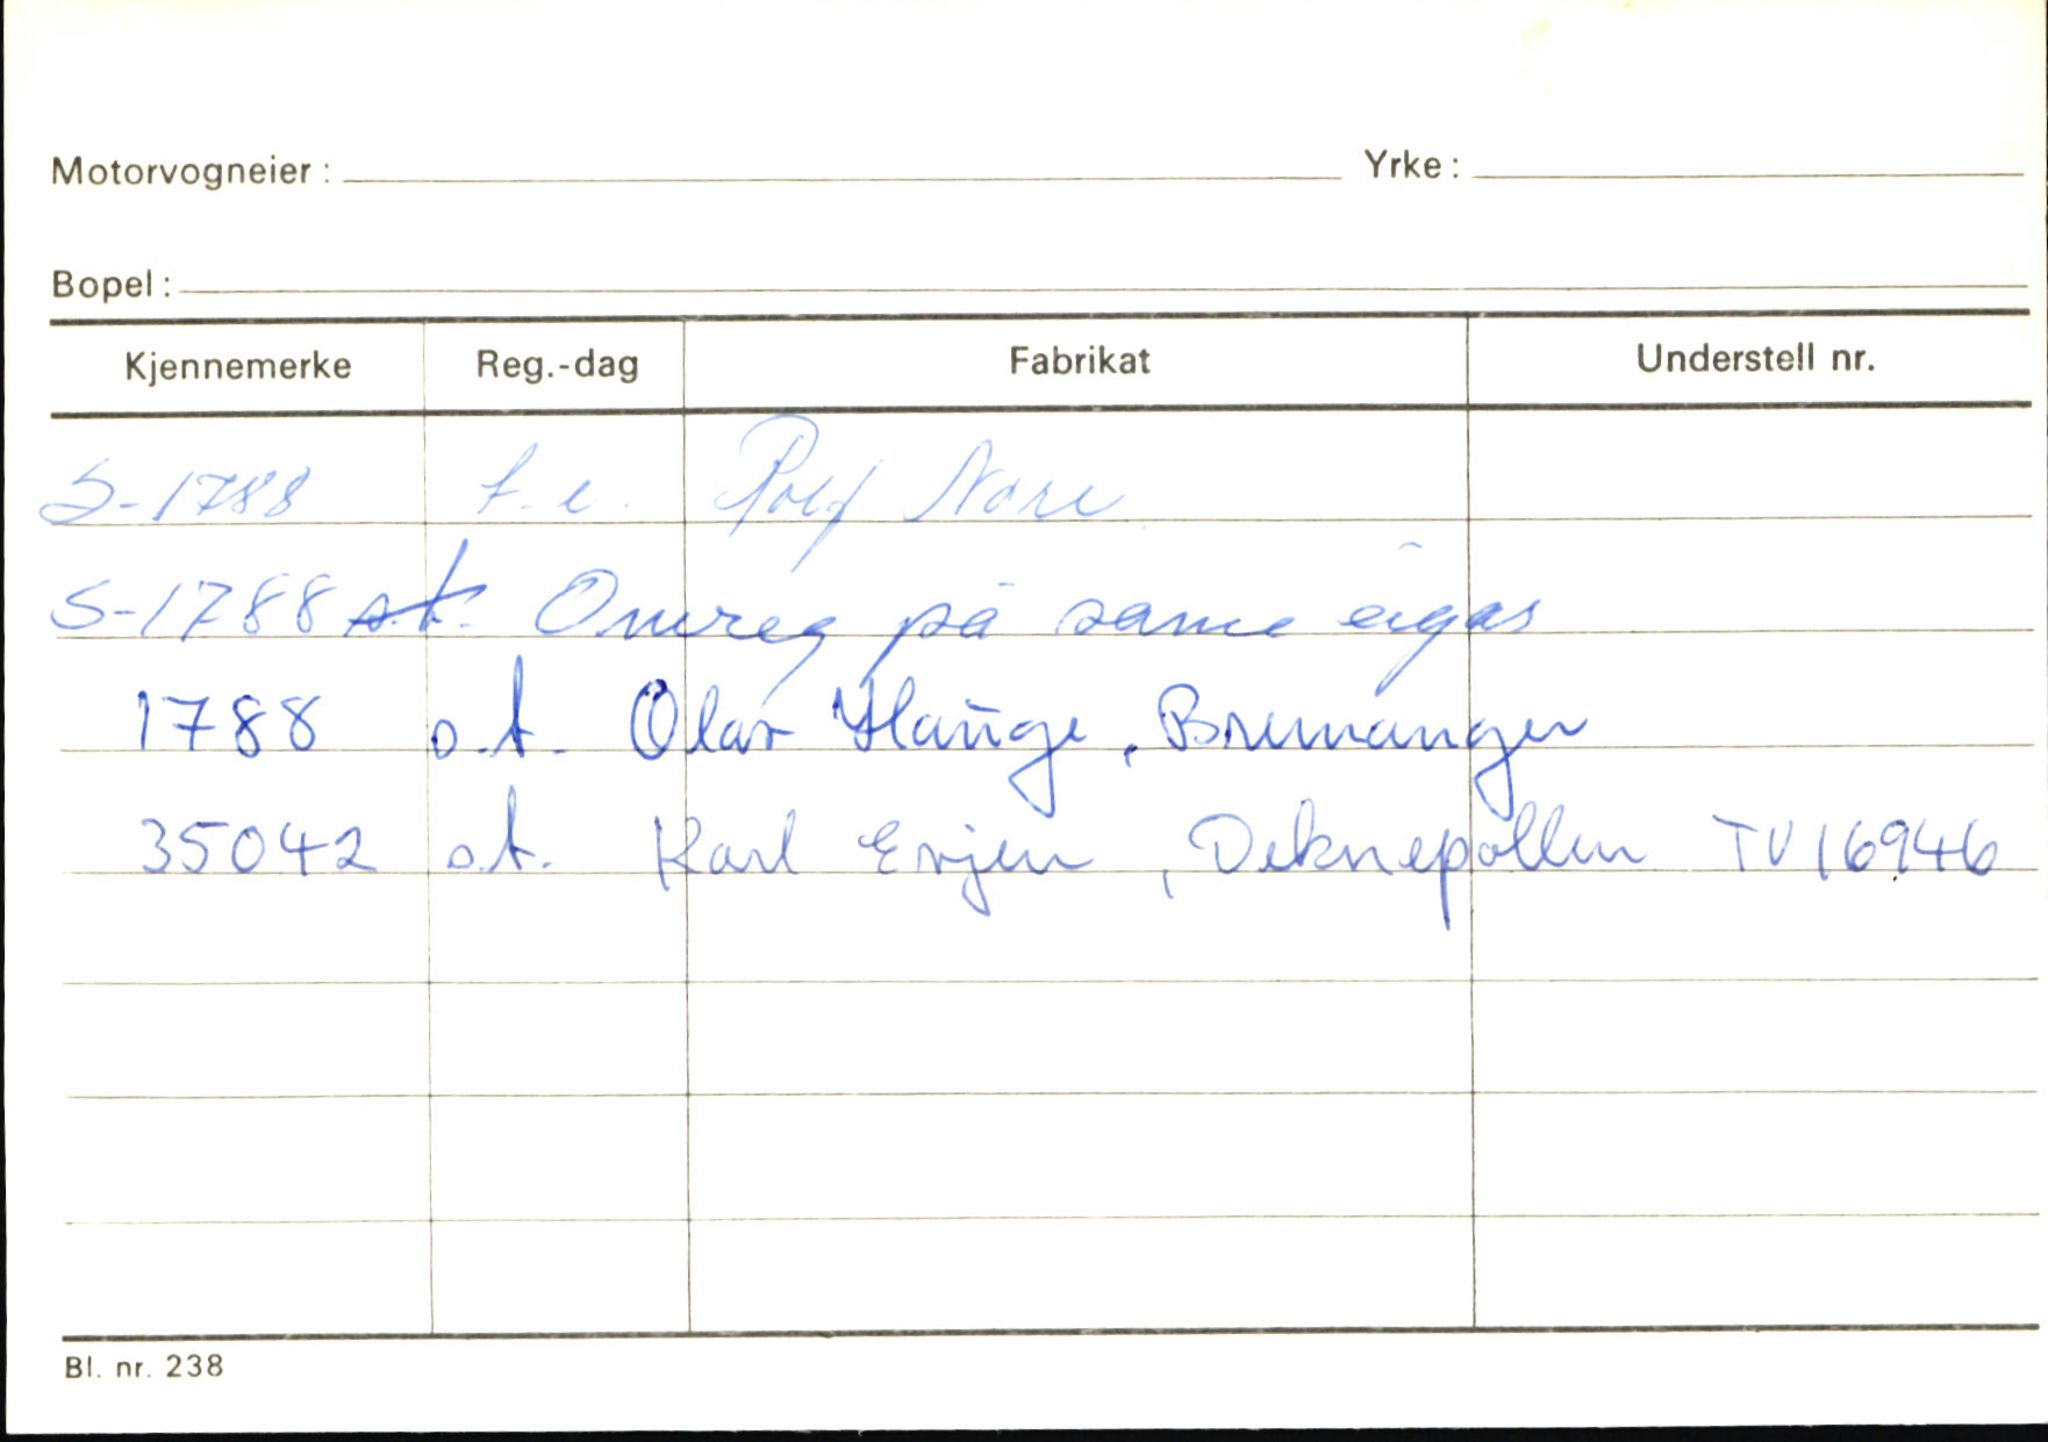 Motorvogneier: Yrke:
Bopel:
Kjennemerke Reg.-dag Fabrikat Understell nr.
S-1788 t.e. Rolf Nore
S-1788 Omreg på same eigar
1788 o.t. Olav Hauge, Bremanger
35042 o.t. Karl Evjen, Deknepollen TV16946
Bl. nr. 238